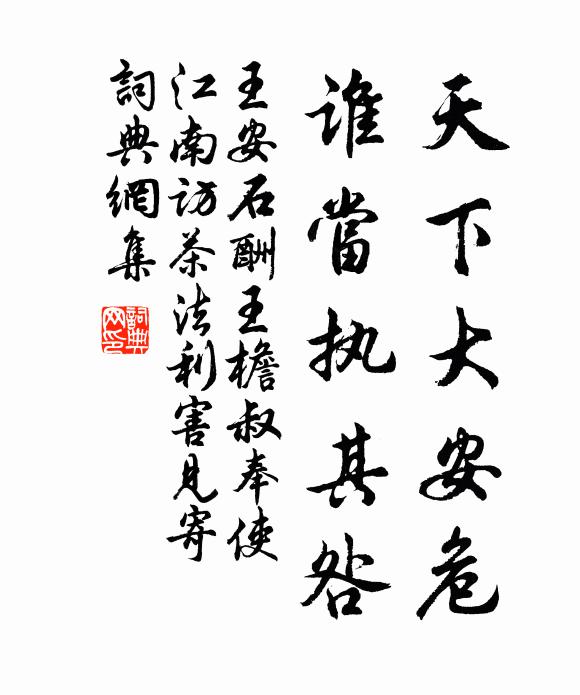 天下大安危
谁當执其咎
王安石酬王檐叔奉使
江南访茶法利害見寄
詞典網集
詞典网印